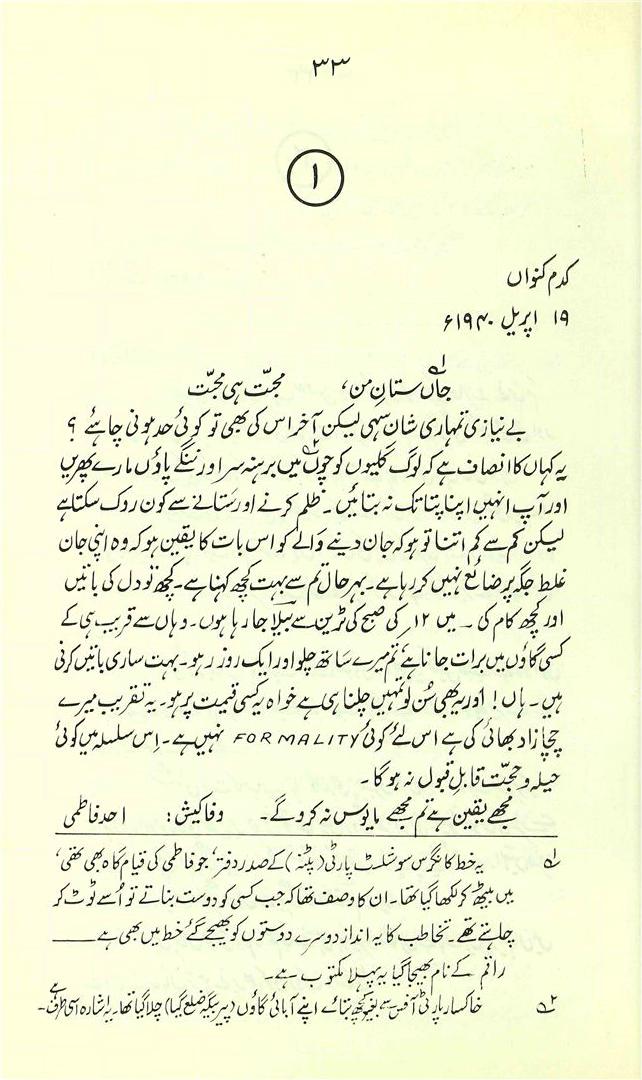 ۳۳
۱
کدم کنواں
۱۹ اپریل ۱۹۴۰ء
جاں ستانِ من،۱؎ محبّت ہی محبّت
بے نیازی تمہاری شان سہی لیکن آخر اس کی بھی تو کوئی حد ہونی چاہئے ؟
یہ کہاں کا انصاف ہے کہ لوگ گلیوں کوچوں۲؎ میں برہنہ سر اور ننگے پاؤں مارے پھریں
اور آپ انہیں اپنا پتا تک نہ بتائیں ۔ ظلم کرنے اور ستانے سے کون روک سکتا ہے
لیکن کم سے کم اتنا تو ہو کہ جان دینے والے کو اس بات کا یقین ہو کہ وہ اپنی جان
غلط جگہ پر ضائع نہیں کر رہا ہے ۔ بہر حال تم سے بہت کچھ کہنا ہے ۔ کچھ تو دل کی باتیں
اور کچھ کام کی ۔ میں ۱۲؍ کی صبح کی ٹرین سے بیلا جا رہا ہوں ۔ وہاں سے قریب ہی کے
کسی گاؤں میں برات جانا ہے تم میرے ساتھ چلو اور ایک روز رہو ۔ بہت ساری باتیں کرنی
ہیں ۔ ہاں ! اور یہ بھی سُن لو تمہیں چلنا ہی ہے خواہ یہ کسی قیمت پر ہو ۔ یہ تقریب میرے
چچا زاد بھائی کی ہے اس لئے کوئی FORMALITY نہیں ہے ۔ اِس سلسلہ میں کوئی
حیلہ و حجّت قابلِ قبول نہ ہو گا ۔
مجھے یقین ہے تم مجھے مایوس نہ کرو گے ۔ وفا کیش : احد فاطمی
۱؎ یہ خط کانگرس سوشلسٹ پارٹی (پٹنہ) کے صدر دفتر ' جو فاطمی کی قیام گاہ بھی تھی '
میں بیٹھ کر لکھا گیا تھا ۔ ان کا وصف تھا کہ جب کسی کو دوست بناتے تو اُسے ٹوٹ کر
چاہتے تھے ۔ تخاطب کا یہ انداز دوسرے دوستوں کو بھیجے گئے خط میں بھی ہے ــــــ
راقم کے نام بھیجا گیا یہ پہلا مکتوب ہے ۔
۲؎ خاکسار پارٹی آفس سے بغیر کچھ بتائے اپنے آبائی گاؤں (پیر بیگہ ضلع گیا) چلا گیا تھا ۔ یہ اشارہ اسی طرف ہے ۔